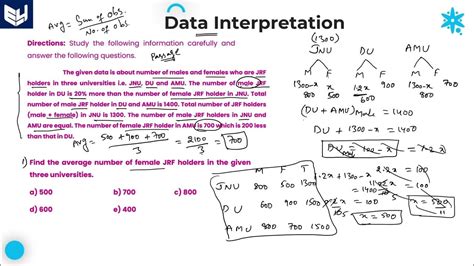 Data Interpretation
Avg = Sum of obs.
No. of obs.
Directions: Study the following information carefully and
answer the following questions.
Passage
The given data is about number of males and females who are JRF
holders in three universities i.e. JNU, DU and AMU. The number of male JRF
holder in DU is 20% more than the number of female JRF holder in JNU. Total
number of male JRF holder in DU and AMU is 1400. Total number of JRF holders
(male + female) in JNU is 1300. The number of male JRF holders in JNU and
AMU are equal. The number of female JRF holder in AMU is 700 which is 200 less
than that in DU.
Avg = 500 + 900 + 700
3
= 2100
3
= 700
1) Find the average number of female JRF holders in the given
three universities.
a) 500 b) 700 c) 800
d) 600 e) 400
(1300)
JNU DU AMU
M F M F M F
1300-x x 1.2x 900 1300-x 700
800 500 600 800
(DU + AMU) Male = 1400
DU + 1300 - x = 1400
M F T
JNU 800 500 1300
DU 600 900 1500
AMU 800 700 1500
1.2x + 1300 - x = 1400
x = 500